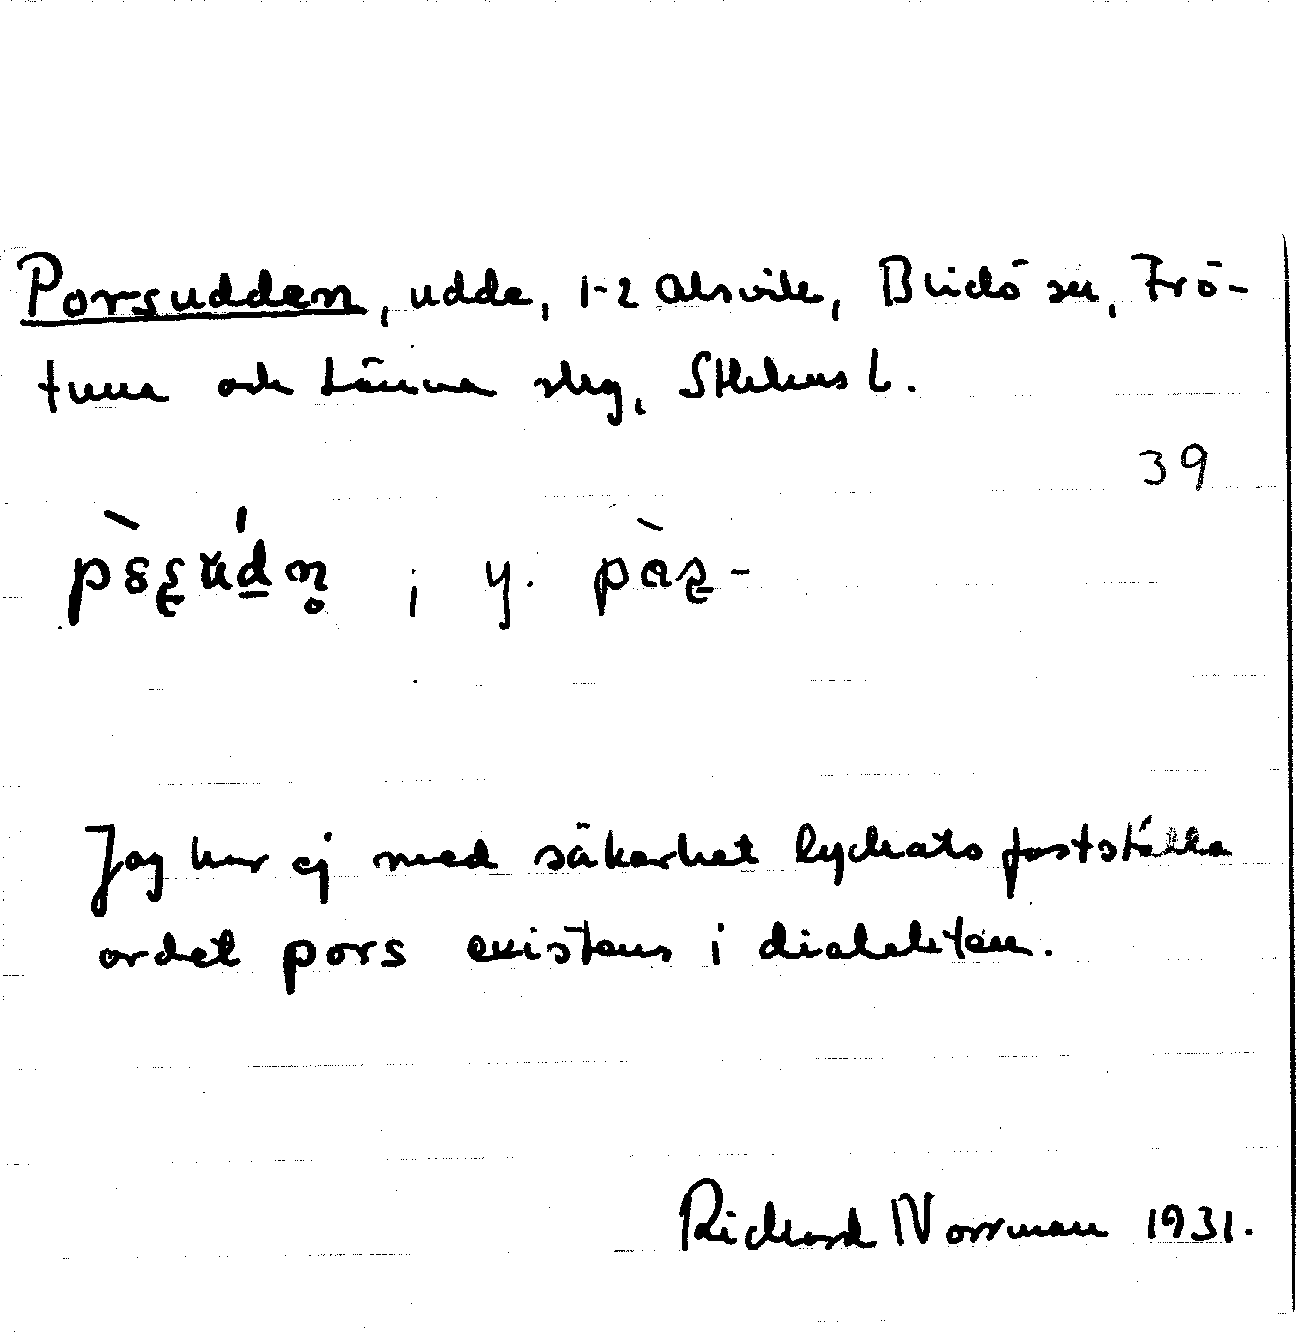 Porsudden, udde, 1-2 Alsvik, Blidö sn, Frö-
tuna och Länna slg, Sthlms l.
39
i y.
Jag har ej med säkerhet lyckats fastställa
ordet pors existens i dialekten.
Richard Norrman 1931.